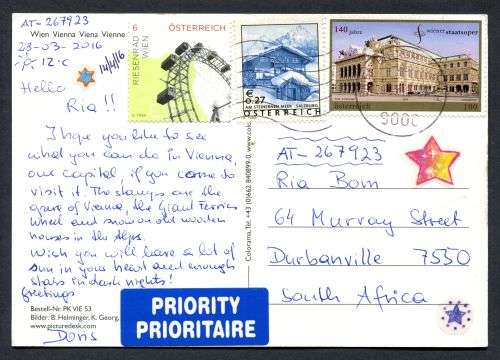 AT-267923
Wien Vienna Viena Vienne
23-03-2016
12°C
14/4/16
Hello
Ria!!
I hope you like to see
what you can do in Vienna,
our capital, if you come to
visit it. The stamps are the
opera of Vienna, the Giant Ferries
wheel and snow on old wooden
houses in the Alps.
Wich you will have a lot of
sun in your heart and enough
stars in dark nights!
greetings
Bestell-Nr: PK VIE 53
Bilder: B. Helminger, K. Georg,
www.picturedesk.com
Doris
6
ÖSTERREICH
RIESENRAD
WIEN
€
0.27
AM STEIRERNEN MEER SALZBURG
ÖSTERREICH
140 Jahre
wiener staatsoper
österreich
100
Colorama, Tel. +43 (0)662 840899-0, www.colo
AT-267923
Ria Bom
64 Murray Street
Durbanville 7550
South Africa
PRIORITY
PRIORITAIRE